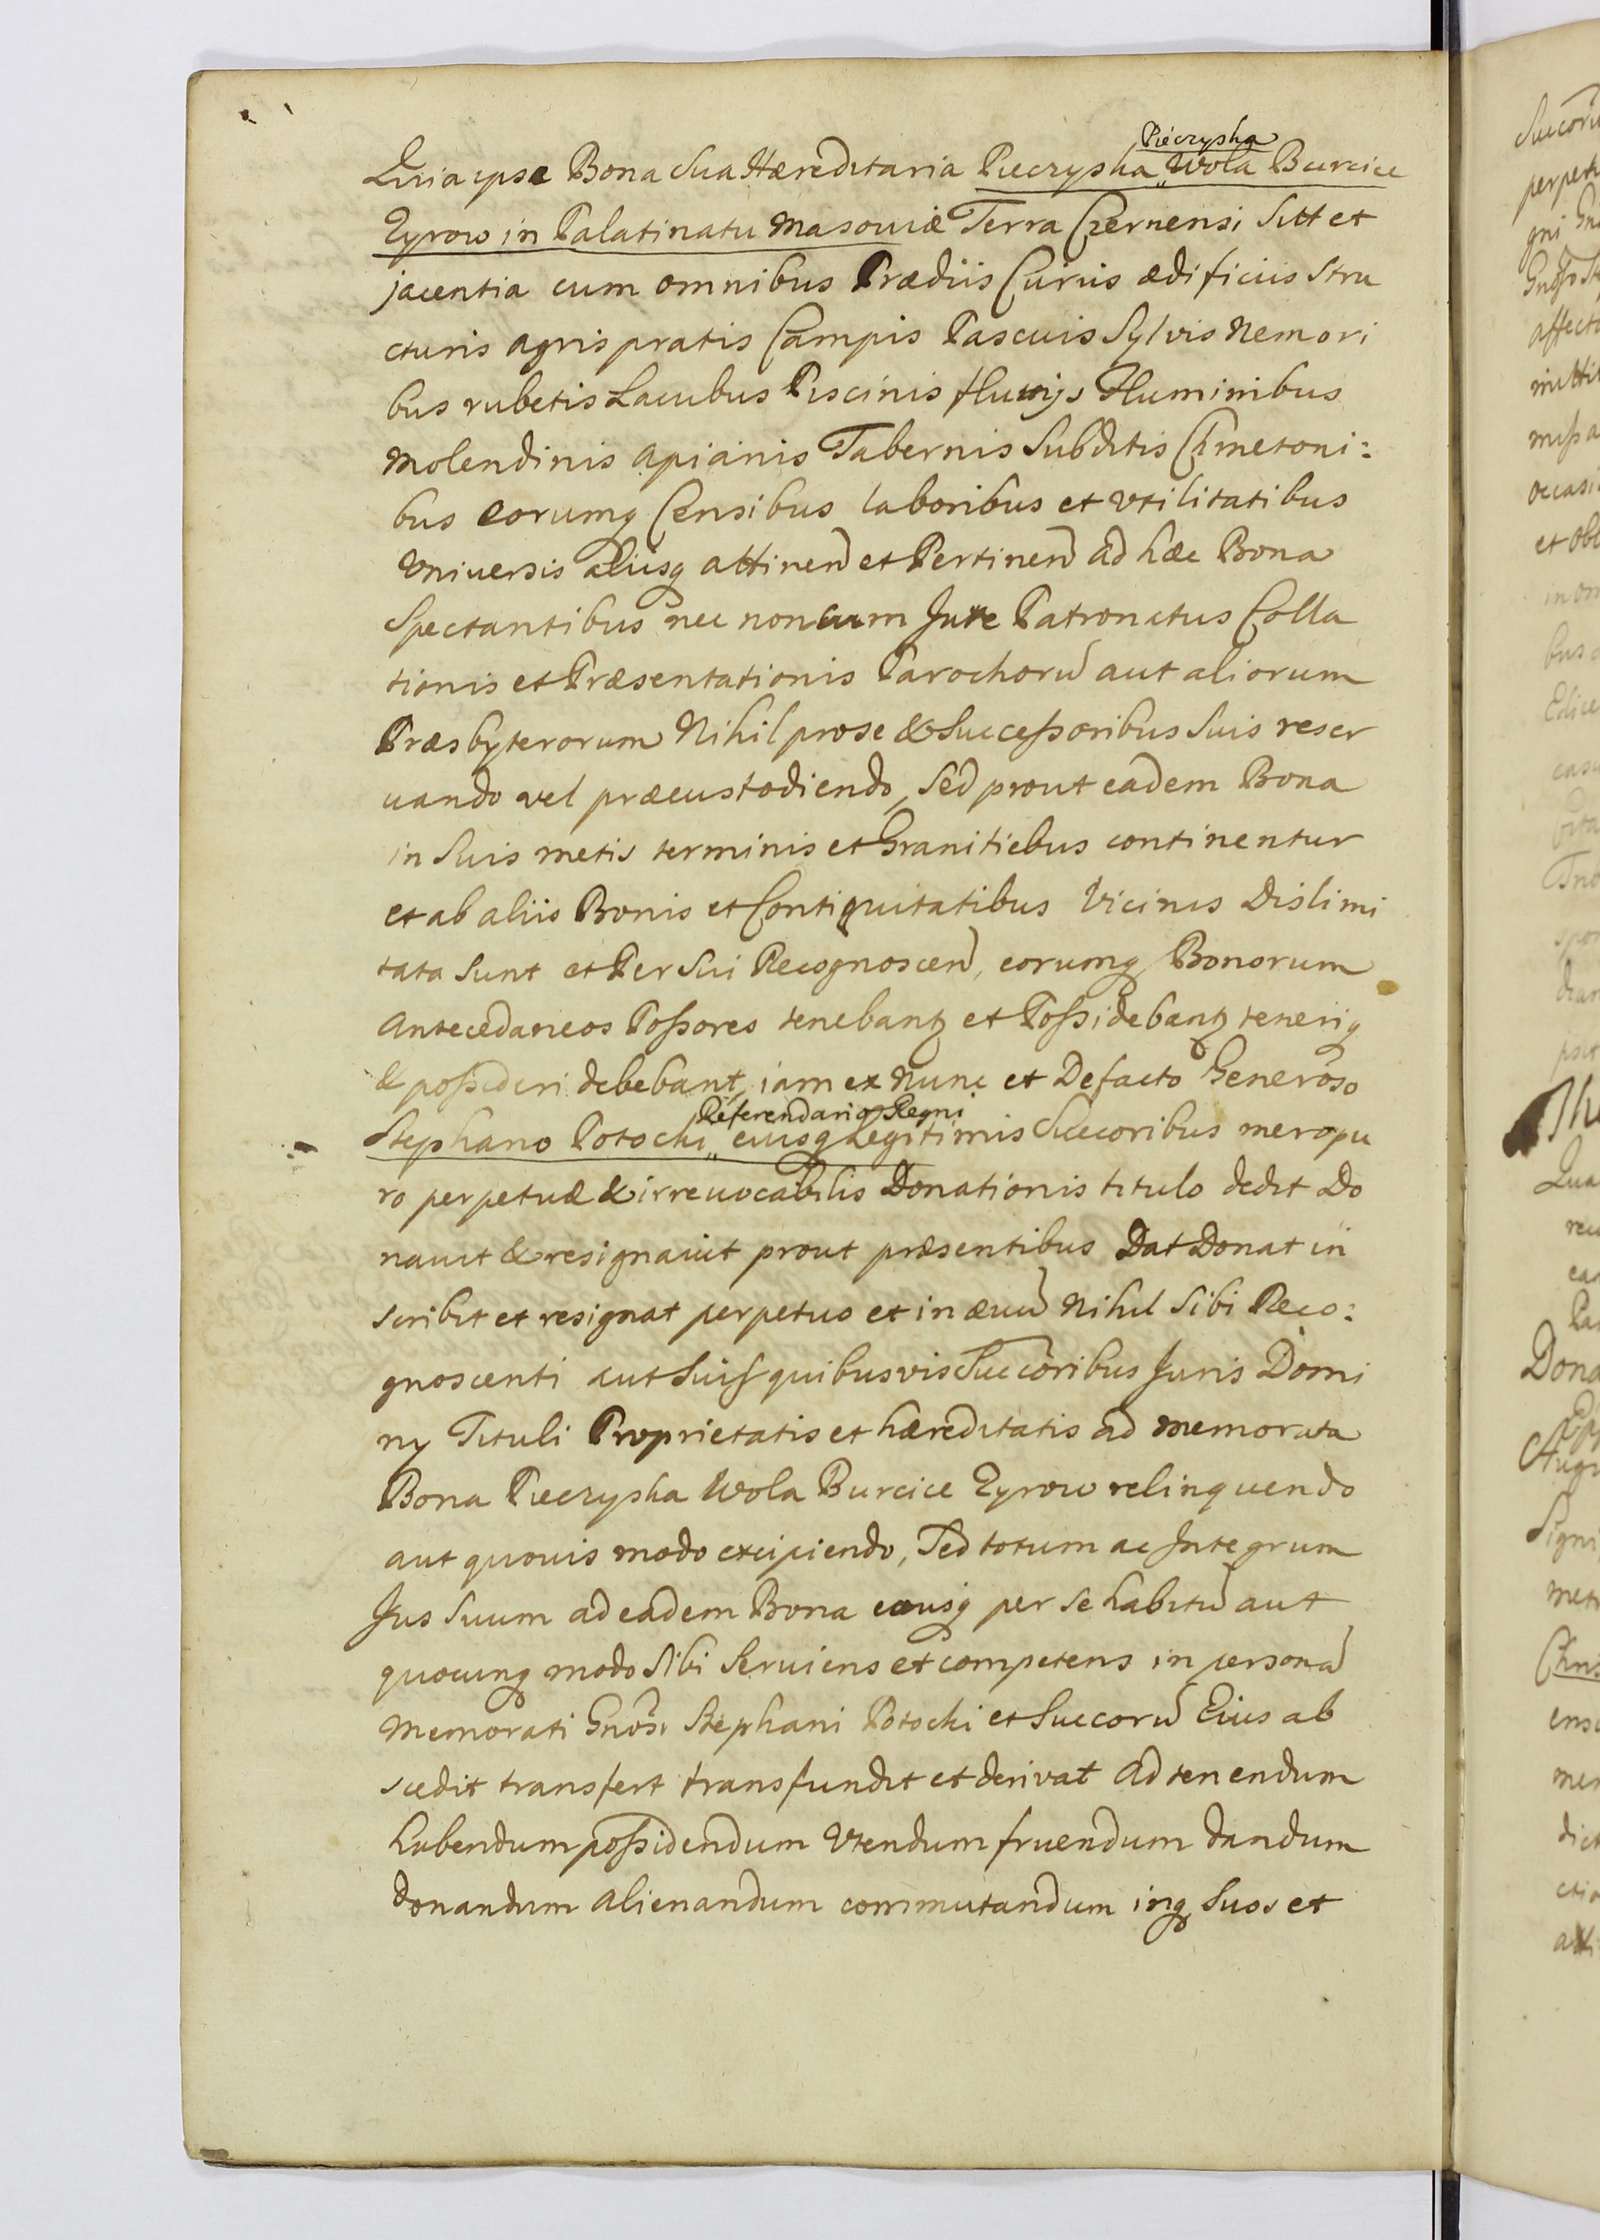 Piecrysha
Quia ipse Bona Sua Hæreditaria Piecrysha „ Wola Burcice
Zyrow in Palatinatu Masouiæ Terra Czernensi Sitt et
jacentia cum omnibus Prædiis Curiis ædificiis Stru
cturis agris pratis Campis Pascuis Sylvis Nemori
bus rubetis Lacubus Piscinis fluvijs Fluminibus
Molendinis apianis Tabernis Subditis Cmetoni:
bus eorumq Censibus laboribus et vtilitatibus
vniuersis aliisq attinen et Pertinen ad hæc Bona
Spectantibus nec non cum Jure Patronatus Colla
tionis et Præsentationis Parochorū aut aliorum
Præsbyterorum Nihil pro se & Successoribus Suis reser
uando vel præcustodiendo, Sed prout eadem Bona
in Suis metis terminis et Granitiebus continentur
et ab aliis Bonis et Contiguitatibus Vicinis Dislimi
tata Sunt et Per Sui Recognoscen, eorumq Bonorum
Antecedaneos Possores tenebantʒ et Possidebantʒ teneriq
& possideri debebant, iam ex Nunc et Defacto Generoso
Referendario Regni
Stephano Potocki „ eiusq Legitimis Succoribus mero pu
ro perpetuæ & irreuocabilis Donationis titulo dedit Do
nauit & resignauit prout præsentibus Dat Donat in
scribit et resignat perpetuo et in æuū Nihil Sibi Reco:
gnoscenti aut Suis quibusvis Succoribus Juris Domi
ny Tituli Proprietatis et hæreditatis ad memorata
Bona Piecrysha Wola Burcice Zyrow relinquendo
aut quouis modo excipiendo, Sed totum ac Integrum
Jus Suum ad eadem Bona eousq per se habitū aut
quocunq modo Sibi Seruiens et competens in personā
Memorati Gnosi Stephani Potocki et Succorū Eius ab
scedit transfert transfundit et derivat ad tenendum
habendum possidendum Vtendum fruendum dandum
donandum alienandum commutandum inq Suos et